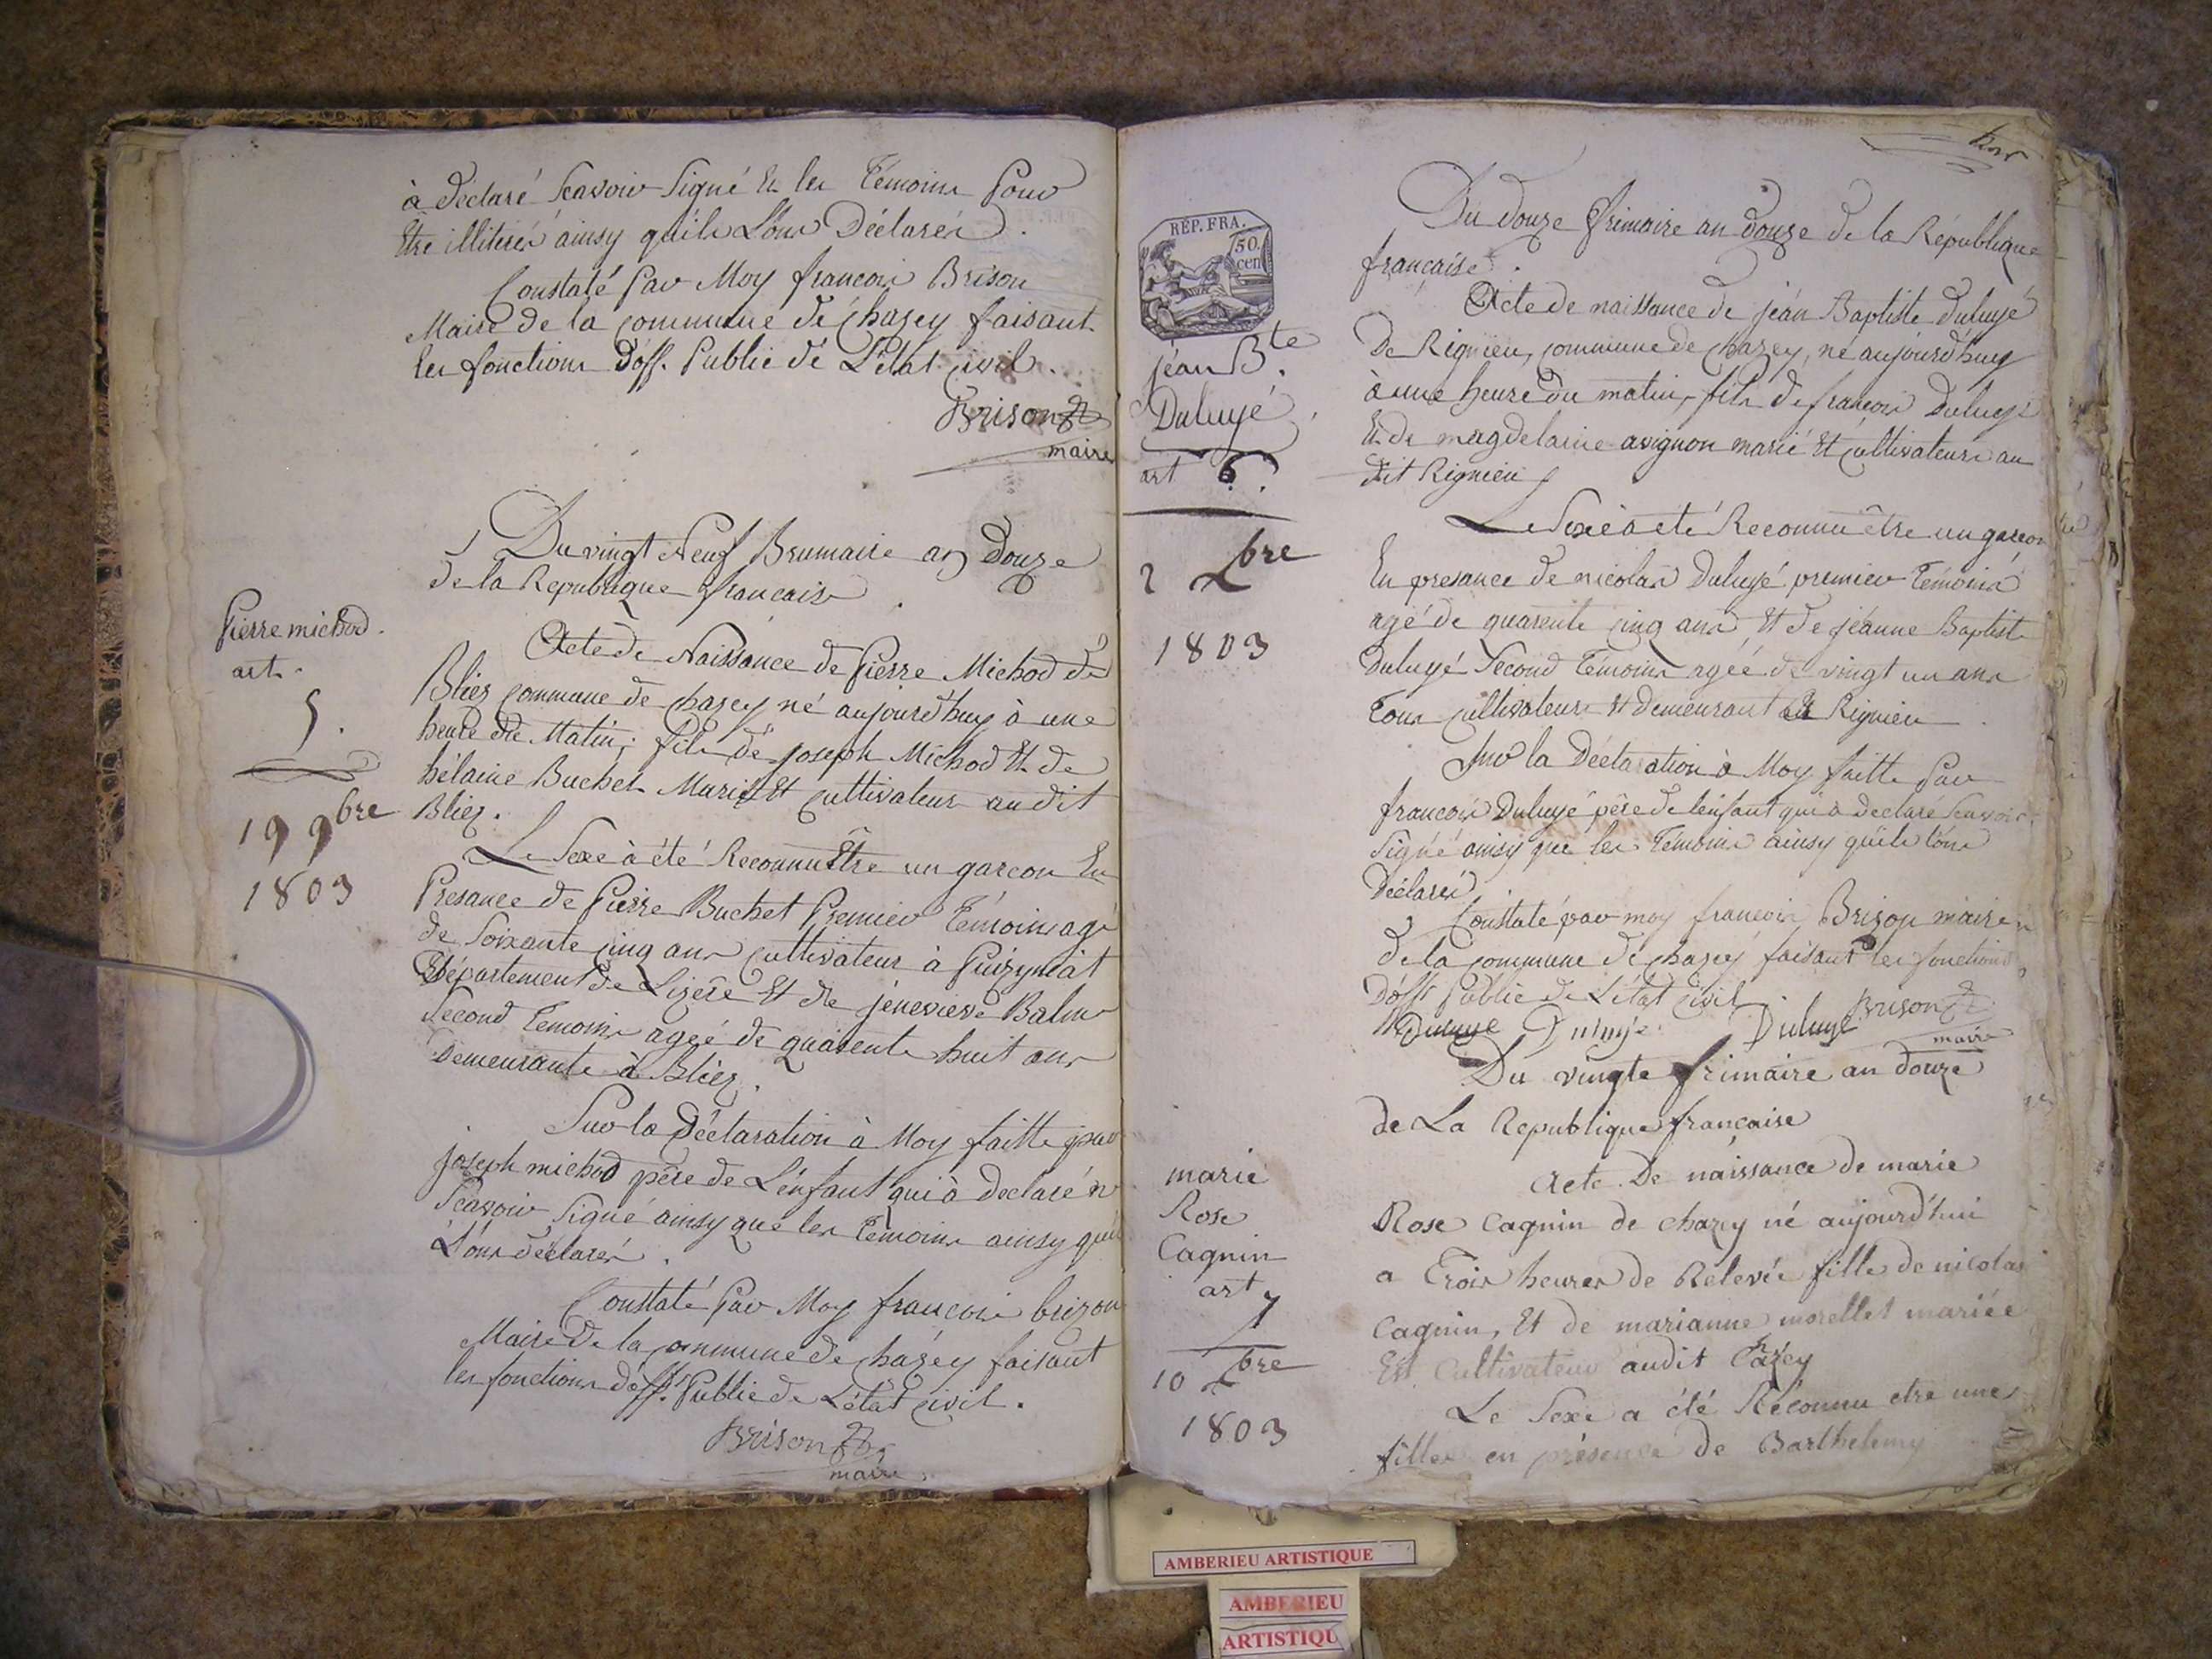 à déclaré Scavoir Signé Et les Témoins Pour
Etre illiterés ainsy quils L'ons Déclarés.
Constaté Par Moy françois Brison
Maire de la commune de Chazey faisant
les fonctions D'off. Public de L'état civil.
Brison
maire
Du vingt Neuf Brumaire an Douze
de la Republique française.
Pierre michod.
art.
5.
19 9bre
1803
Acte de Naissance de Pierre Michod de
Bliez commune de chazey né aujourd'huy à une
heure du Matin, fils de joseph Michod Et de
hélaine Buchet Mariés Et cultivateur audit
Bliez.
Le Sexe à été Reconnu Etre un garcon En
Presance de Pierre Buchet Premier Témoins agé
de Soixante cinq ans cultivateur à
Département de Lizère Et de jenevieve Balme
Second Temoins ageé de quarente huit ans
Demeurante à Bliez.
Sur la Déclaration à Moy faitte par
joseph michod père de L'enfant qui à declaré
Scavoir Signé ainsy que les Témoins ainsy qu'il
L'ons déclarés.
Constaté Par Moy françois brizon
Maire de la commune de chazey faisant
les fonctions d'off. Public de L'état civil.
Brison
maire
RÉP. FRA.
50
cen
jéan Bte.
Duluyé
art 6.
2 Xbre
1803
Du douze frimaire an douze de la République
française.
Acte de naissance de jéan Baptiste duluyé
De Rignieu, commune de chazey, né aujourd'huy
à une heure du matin, fils de françois Duluyé
Et de magdelaine avignon marié Et cultivateurs au
dit Rignieu
Le Sexe à eté Reconnu être un garcon
En presance de nicolas Duluyé premier Témoins
agé de quarente cinq ans Et de jéanne Baptiste
duluyé Second Témoins agéé de vingt un ans
Tous cultivateurs Et demeurant Rignieu
Sur la Déclaration à Moy faitte Par
françois Duluyé père de lenfant qui a declaré Scavoir
Signé ainsy que les Témoins ainsy quils lons
Déclarés.
Constaté par moy françois Brison maire
de la commune de chazey faisant les fonctions
D'off. Public de L'état civil.
Duluyé Duluyé Duluyé Brison
maire
Du vingte frimaire an douze
de La Republique française
marie
Rose
Cagnin
art 7
10 Xbre
1803
acte De naissance de marie
Rose Cagnin de chazey né aujourd'hui
a Trois heures de Relevée fille de nicolas
Cagnin, Et de marianne morellet mariée
Est Cultivateur audit Cazey
Le Sexe a été Réconnu etre une
fille en présence de Barthelemy
AMBERIEU ARTISTIQUE
AMBERIEU
ARTISTIQU